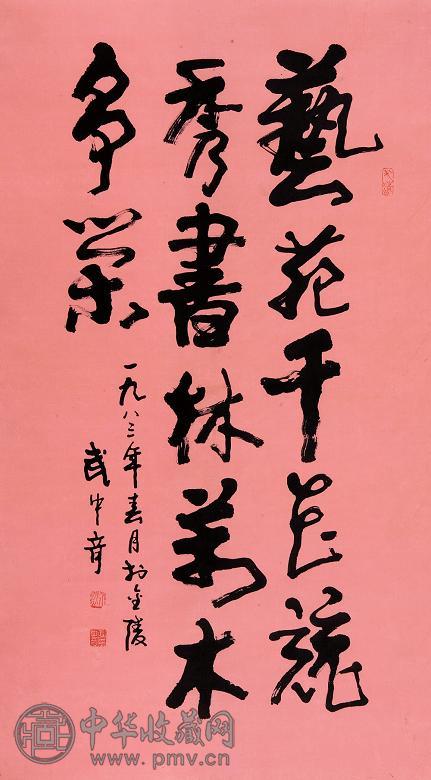 藝苑千花競
秀書林萬木
爭榮
一九八三年春月於金陵
武中奇
中华收藏网
www.pmv.cn